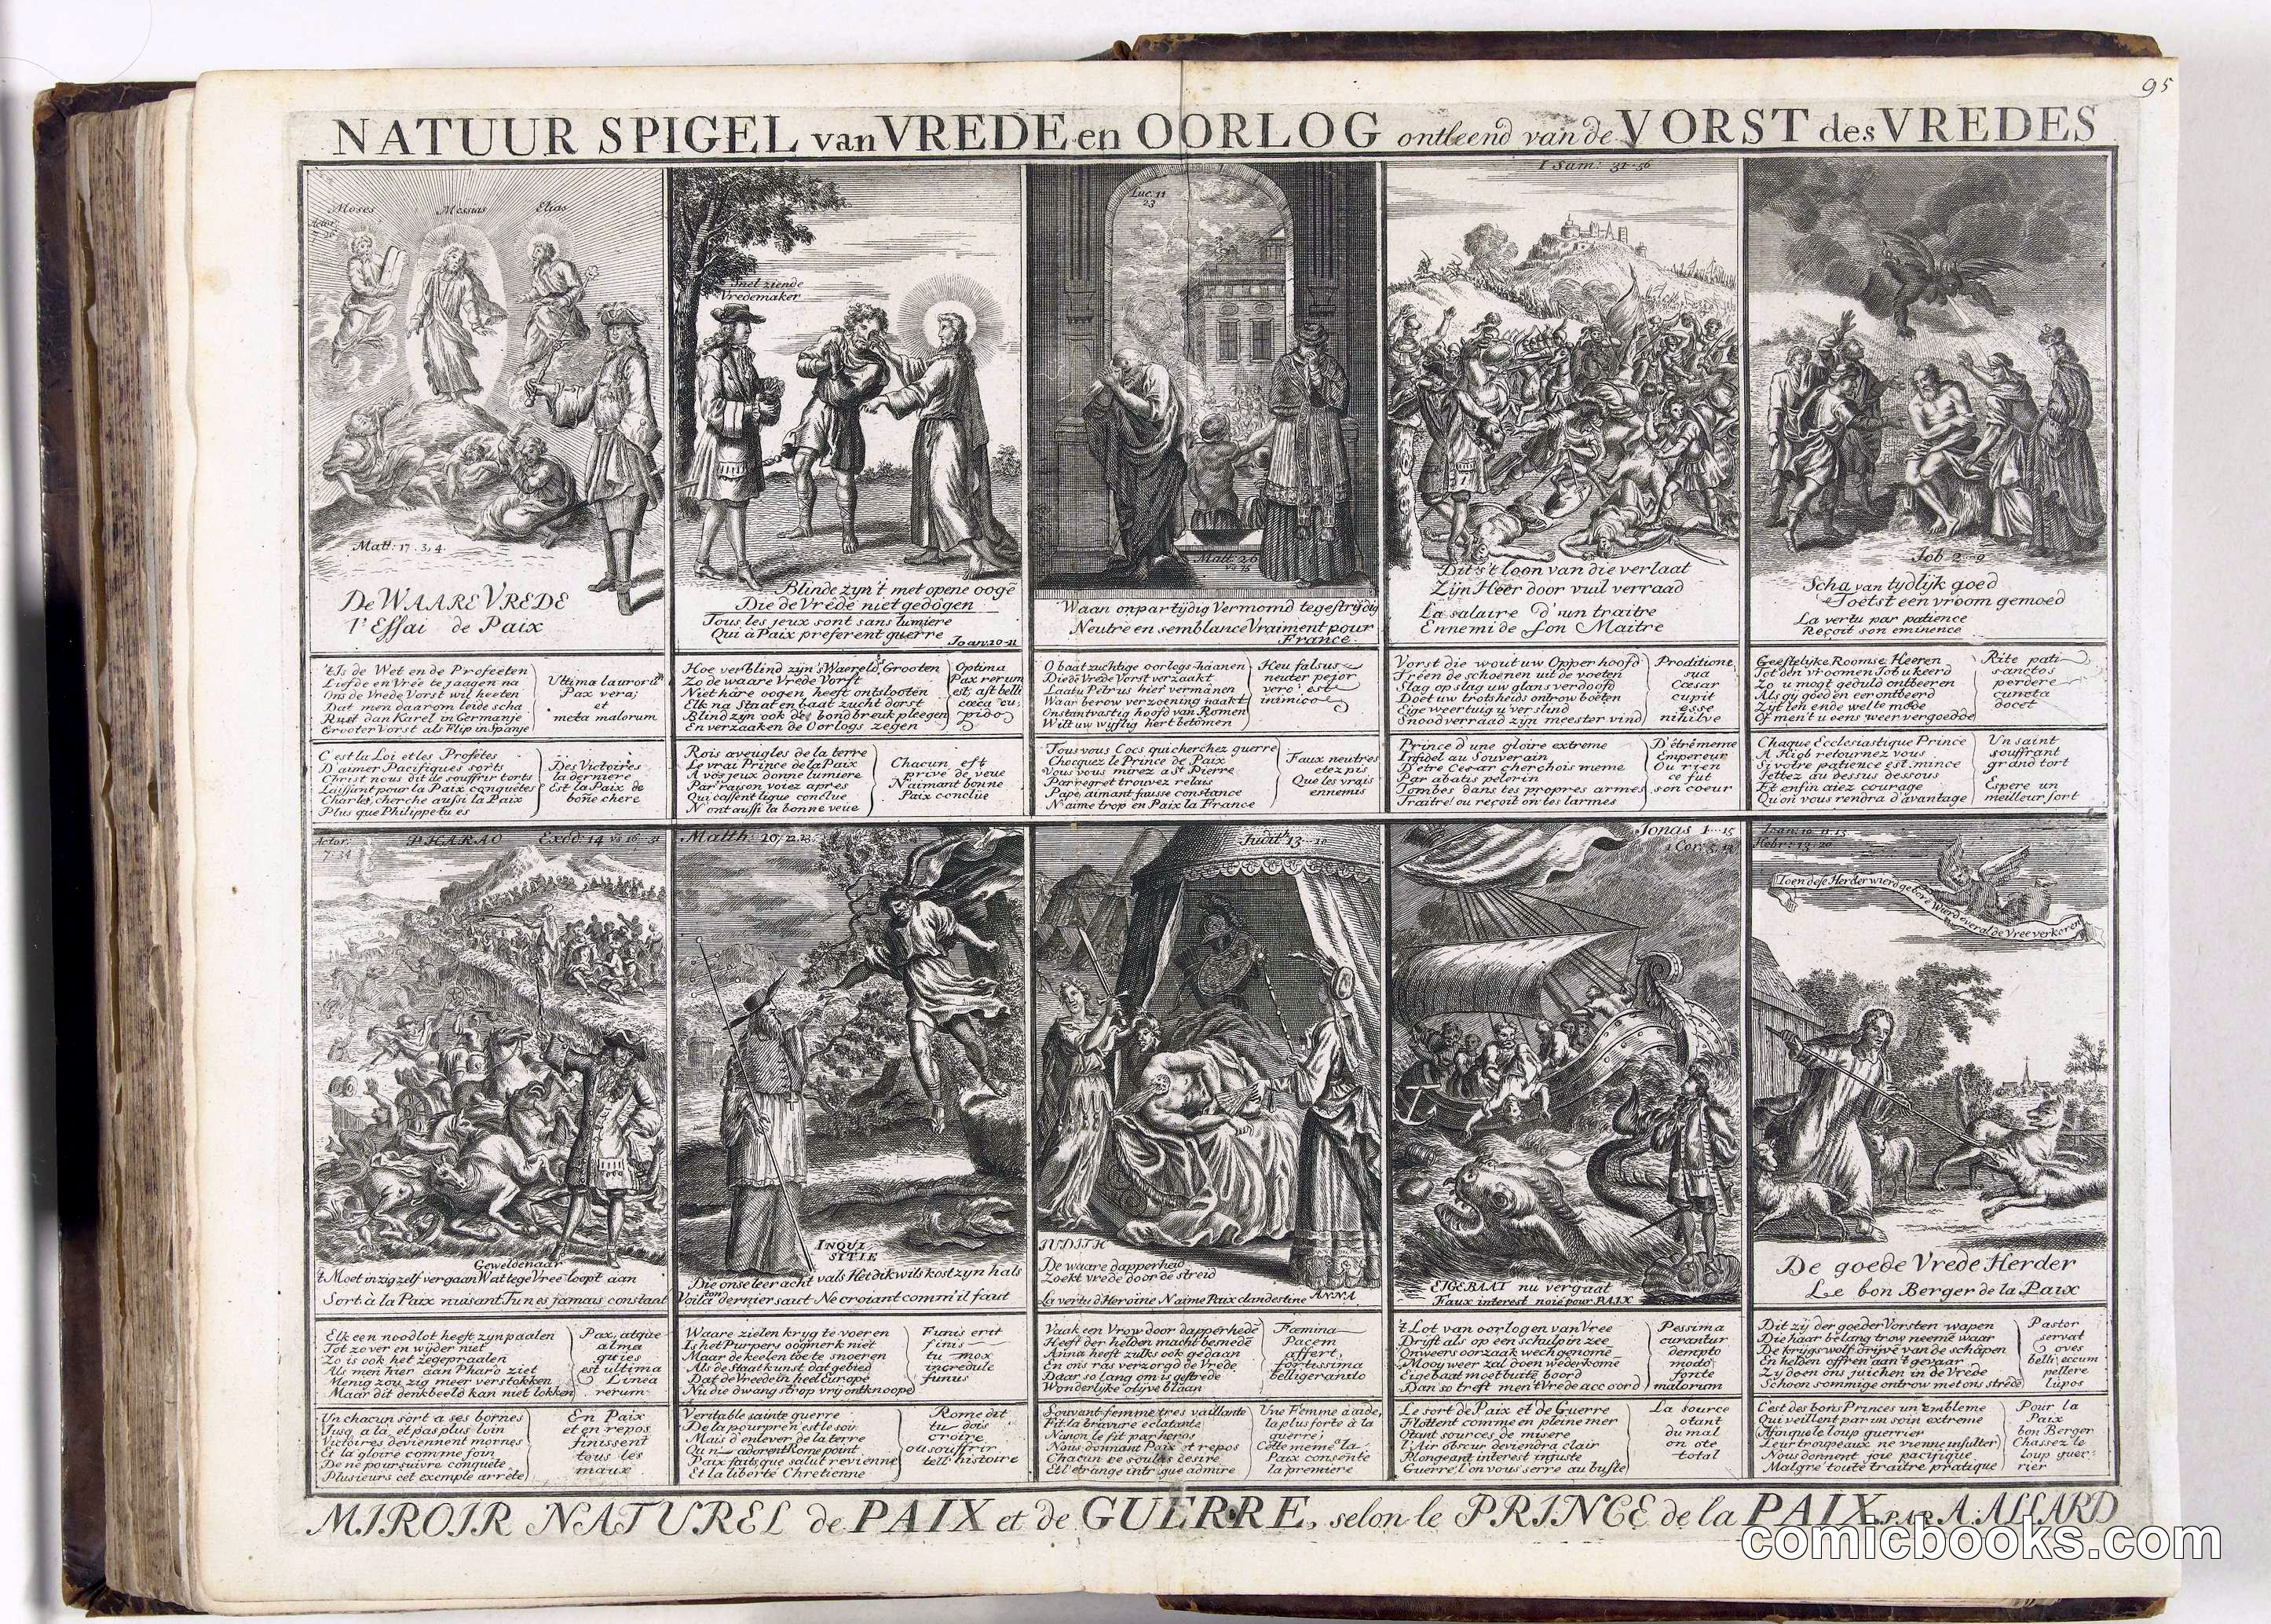 95
NATUUR SPIGEL van VREDE en OORLOG ontleend van de VORST des VREDES
Moses Messias Elias
Matt: 17. 3, 4.
De WAARE VREDE
l'Essai de Paix
Snel ziende
Vredemaker
Blinde zyn't met opene oogē
Die de Vrede niet gedōgen
Tous les jeux sont sans lumiere
Qui à Paix preferent guerre
Joan: 10-21
Luc. 11
23
Matt: 26
Waan onpartydig Vermomd tegestrydig
Neutre en semblance Vraiment pour
France.
I Sam: 31-56
Dit's't loon van die verlaat
Zijn Heer door vuil verraad
La salaire d'un traitre
Ennemi de son Maitre
Job 2-9
Scha van tydlijk goed
Toetst een vroom gemoed
La vertu par patience
Reçoit son eminence
't Is de Wet en de Profeeten
Liefde en Vree te jaagen na
Ons de Vrede Vorst wil heeten
Dat men daarom leide scha
Rust dan Karel in Germanje
Grooter Vorst als Flip in Spanje
Ultima laurorū
Pax vera;
et
meta malorum
Hoe verblind zijn 's Waereld Grooten
Zo de waare Vrede Vorst
Niet hare oogen heeft ontslooten
Elk na Staat en baat zucht dorst
Blind zyn ook de bondbreuk pleegen
En verzaaken de Oorlogs zegen
Optima
Pax rerum
est; ast belli
cæca cu:
pido
O baatzuchtige oorlogs-haanen
Die de Vrede Vorst verzaakt
Laat u Petrus hier vermanen
Waar berow verzoening naakt
Onstantvastig hoofd van Romen
Wilt uw wyflig hert betomen
Heu falsus
neuter pejor
vero est
inimico
Vorst die wout uw Opperhoofd
Treen de schoenen uit de voeten
Slag op slag uw glans verdooft
Doet uw trotsheids ontrow boeten
Eige weertuig u verslind
Snood verraad zyn meester vind
Proditione
sua
Cæsar
cupit
esse
nihilve
Geestelyke Roomse Heeren
Tot den vroomen Job u keerd
Zo u mogt geduld ontbeeren
Als gy goed en eer ontbeerd
Zyt ten ende wel te moede
Of men't u eens weer vergoedde
Rite pati
sanctos
perdere
cuncta
docet
C'est la Loi et les Profetes
D'aimer Pacifiques sorts
Christ nous dit de souffrir torts
Laissant pour la Paix conquêtes
Charles, cherche aussi la Paix
Plus que Philippe tu es
Des Victoires
la derniere
Est la Paix de
bone chere
Rois aveugles de la terre
Le vrai Prince de la Paix
A vos jeux donne lumiere
Par raison voiez apres
Qui cassent ligue conclue
N'ont aussi la bonne veue
Chacun est
privé de veue
N'aimant bonne
Paix conclue
Tous vous Cocs qui cherchez guerre
Chocquez le Prince de Paix
Vous vous mirez a St Pierre
Par regret trouvez relais
Pape aimant fausse constance
N'aime trop en Paix la France
Faux neutres
etez pis
Que les vrais
ennemis
Prince d'une gloire extreme
Infidel au Souverain
D'etre Cesar cherchois meme
Par abatis pelerin
Tombes dans tes propres armes
Traitre! ou reçoit on les larmes
D'être meme
Empereur
Ou rien
ce fut
son coeur
Chaque Ecclesiastique Prince
A Hiob retournez vous
Si votre patience est mince
Jettez au dessus dessous
Et enfin aiez courage
Qu'on vous rendra d'avantage
Un saint
souffrant
grand tort
Espere un
meilleur sort
Actor:
7:34
PHARAO Exod: 14 vs 16-31
Geweldenaar
't Moet in zig zelf vergaan Wat tege Vree loopt aan
Sort à la Paix nuisant Tu nes jamais constant
Matth: 10/22.23
INQUI
SITIE
Die onse leer acht vals Het dik wils kost zyn hals
Voila ton dernier saut Ne croiant comm'il faut
Judith 13-10
JUDITH
De waare dapperheid
Zoekt vrede door de streid
La vertu d'Heroine N'aime Paix clandestine
ANNA
Jonas 1-15
1 Cor: 5.12
EIGEBAAT nu vergaat
Faux interest noié pour PAIX
Joan: 10. 11. 15
Hebr: 13-20
Toen dese Herder wierd gebore Wierd overal de Vree verkoren
De goede Vrede Herder
Le bon Berger de la Paix
Elk een noodlot heeft zyn paalen
Tot zo ver en wyder niet
Zo is ook het zegepraalen
Als men hier aan Pharo ziet
Menig zou zig meer verstokken
Maar dit denkbeeld kan niet lokken
Pax, atque
alma
quies
est ultima
Linea
rerum
Waare zielen kryg te voeren
Is het Purpers oogmerk niet
Maar de keelen toe te snoeren
Als de Staatkunst dat gebied
Dat de Vrede in heel Europe
Nu die dwangstrop vry ontknoope
Funis erit
finis
tu mox
incredule
funus
Vaak een Vrow door dapperhede
Heeft der helden macht besnede
Anna heeft zulks ook gedaan
En ons ras verzorgd de Vrede
Daar so lang om is gestrede
Wonderlyke olyve blaan
Fœmina
Pacem
affert,
fortissima
belligerando
't Lot van oorlog en van Vree
Dryft als op een schulp in zee
Onweers oorzaak wech genome
Mooy weer zal doen wederkome
Eigebaat moet buite boord
Dan so treft men't Vrede accoord
Pessima
curantur
dempto
modo
fonte
malorum
Dit zij der goeder Vorsten wapen
Die haar belang trow neeme waar
De krygswolf dryve van de schapen
En helden offren aan't gevaar
Zy doen ons juichen in de Vrede
Schoon sommige ontrow met ons strede
Pastor
servat
oves
belli eccum
pellere
lupos
Un chacun sort a ses bornes
Jusq a la, et pas plus loin
Victoires deviennent mornes
Et la gloire comme foin
De ne poursuivre conquête
Plusieurs cet exemple arrête
En Paix
et en repos
finissent
tous les
maux
Veritable sainte guerre
De la pourpre n'est le soin
Mais d'enlever de la terre
Qu'n adorent Rome point
Paix faits que salut revienne
Et la liberté Chretienne
Rome dit
tu dois
croire
ou souffrir
tell'histoire
Souvant femme tres vaillante
Fit la bravure eclatante
Nanon le fit par heros
Nous donnant Paix et repos
Chacun ce soulas desire
Et l'etrange intrigue admire
Une Femme a aide,
la plus forte à la
guerre;
Cette meme la
Paix consente
la premiere
Le sort de Paix et de Guerre
Flottent comme en pleine mer
Otant sources de misere
l'Air obscur deviendra clair
Plongeant interest injuste
Guerre, l'on vous serre au buste
La source
otant
du mal
on ote
total
C'est des bons Princes un Embleme
Qui veillent par un soin extreme
Afin que le loup guerrier
Leur troupeaux ne vienne insulter
Nous donnent joie pacifique
Malgré toute traitre pratique
Pour la
Paix
bon Berger
Chassez le
loup guer-
rier
MIROIR NATUREL de PAIX et de GUERRE, selon le PRINCE de la PAIX PAR A: ALLARD
comicbooks.com